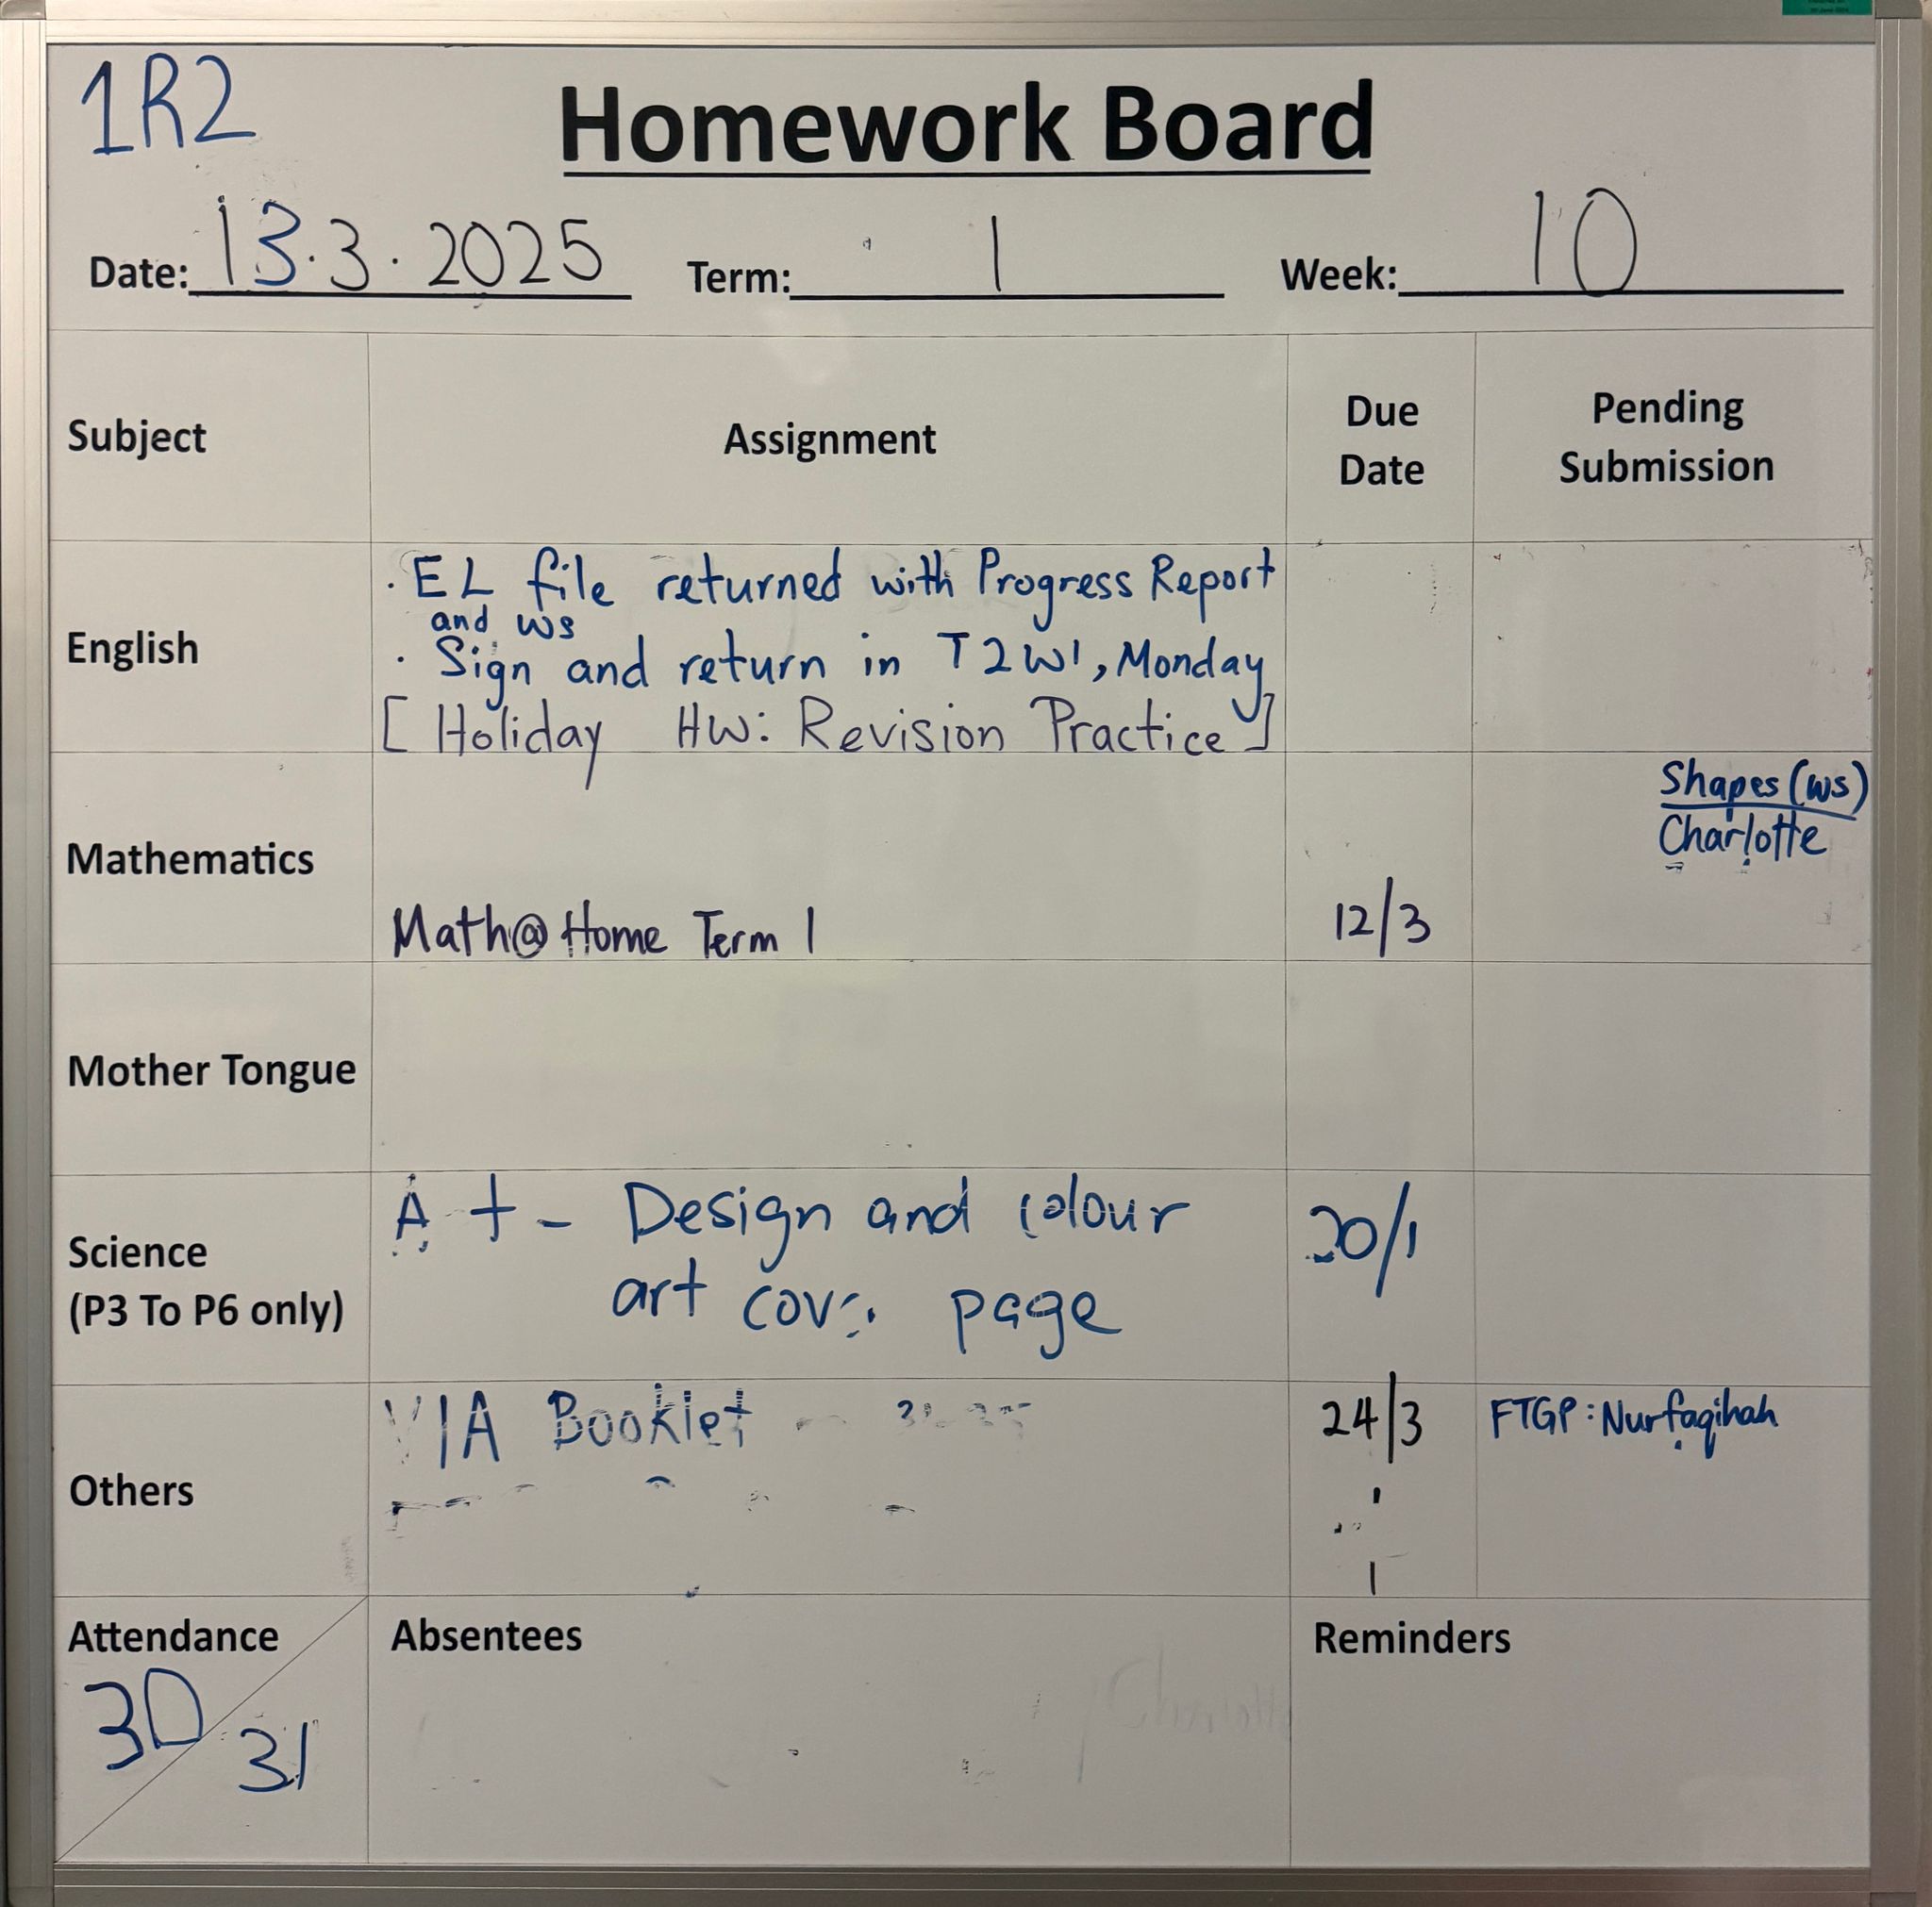 1R2
Homework Board
Date: 13.3.2025 Term: 1 Week: 10
Subject Assignment Due Date Pending Submission
English
. EL file returned with Progress Report
and ws
. Sign and return in T2W1, Monday
[Holiday HW: Revision Practice]
Mathematics
Math@Home Term 1
12/3
Shapes (ws)
Charlotte
Mother Tongue
Science
(P3 To P6 only)
- Design and colour
art page
Others
VIA Booklet
24/3
FTGP: Nurfaqihah
Attendance
30
31
Absentees
Reminders